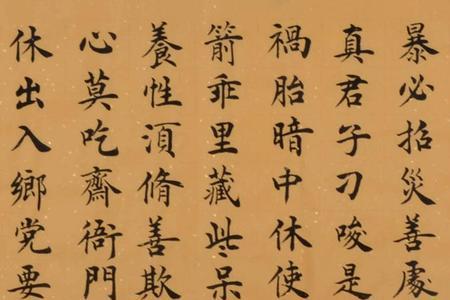 暴必招災善處
真君子刁唆是
禍胎暗中休使
箭乖里藏些呆
養性湏脩善欺
心莫吃齋衙門
休出入鄉党要